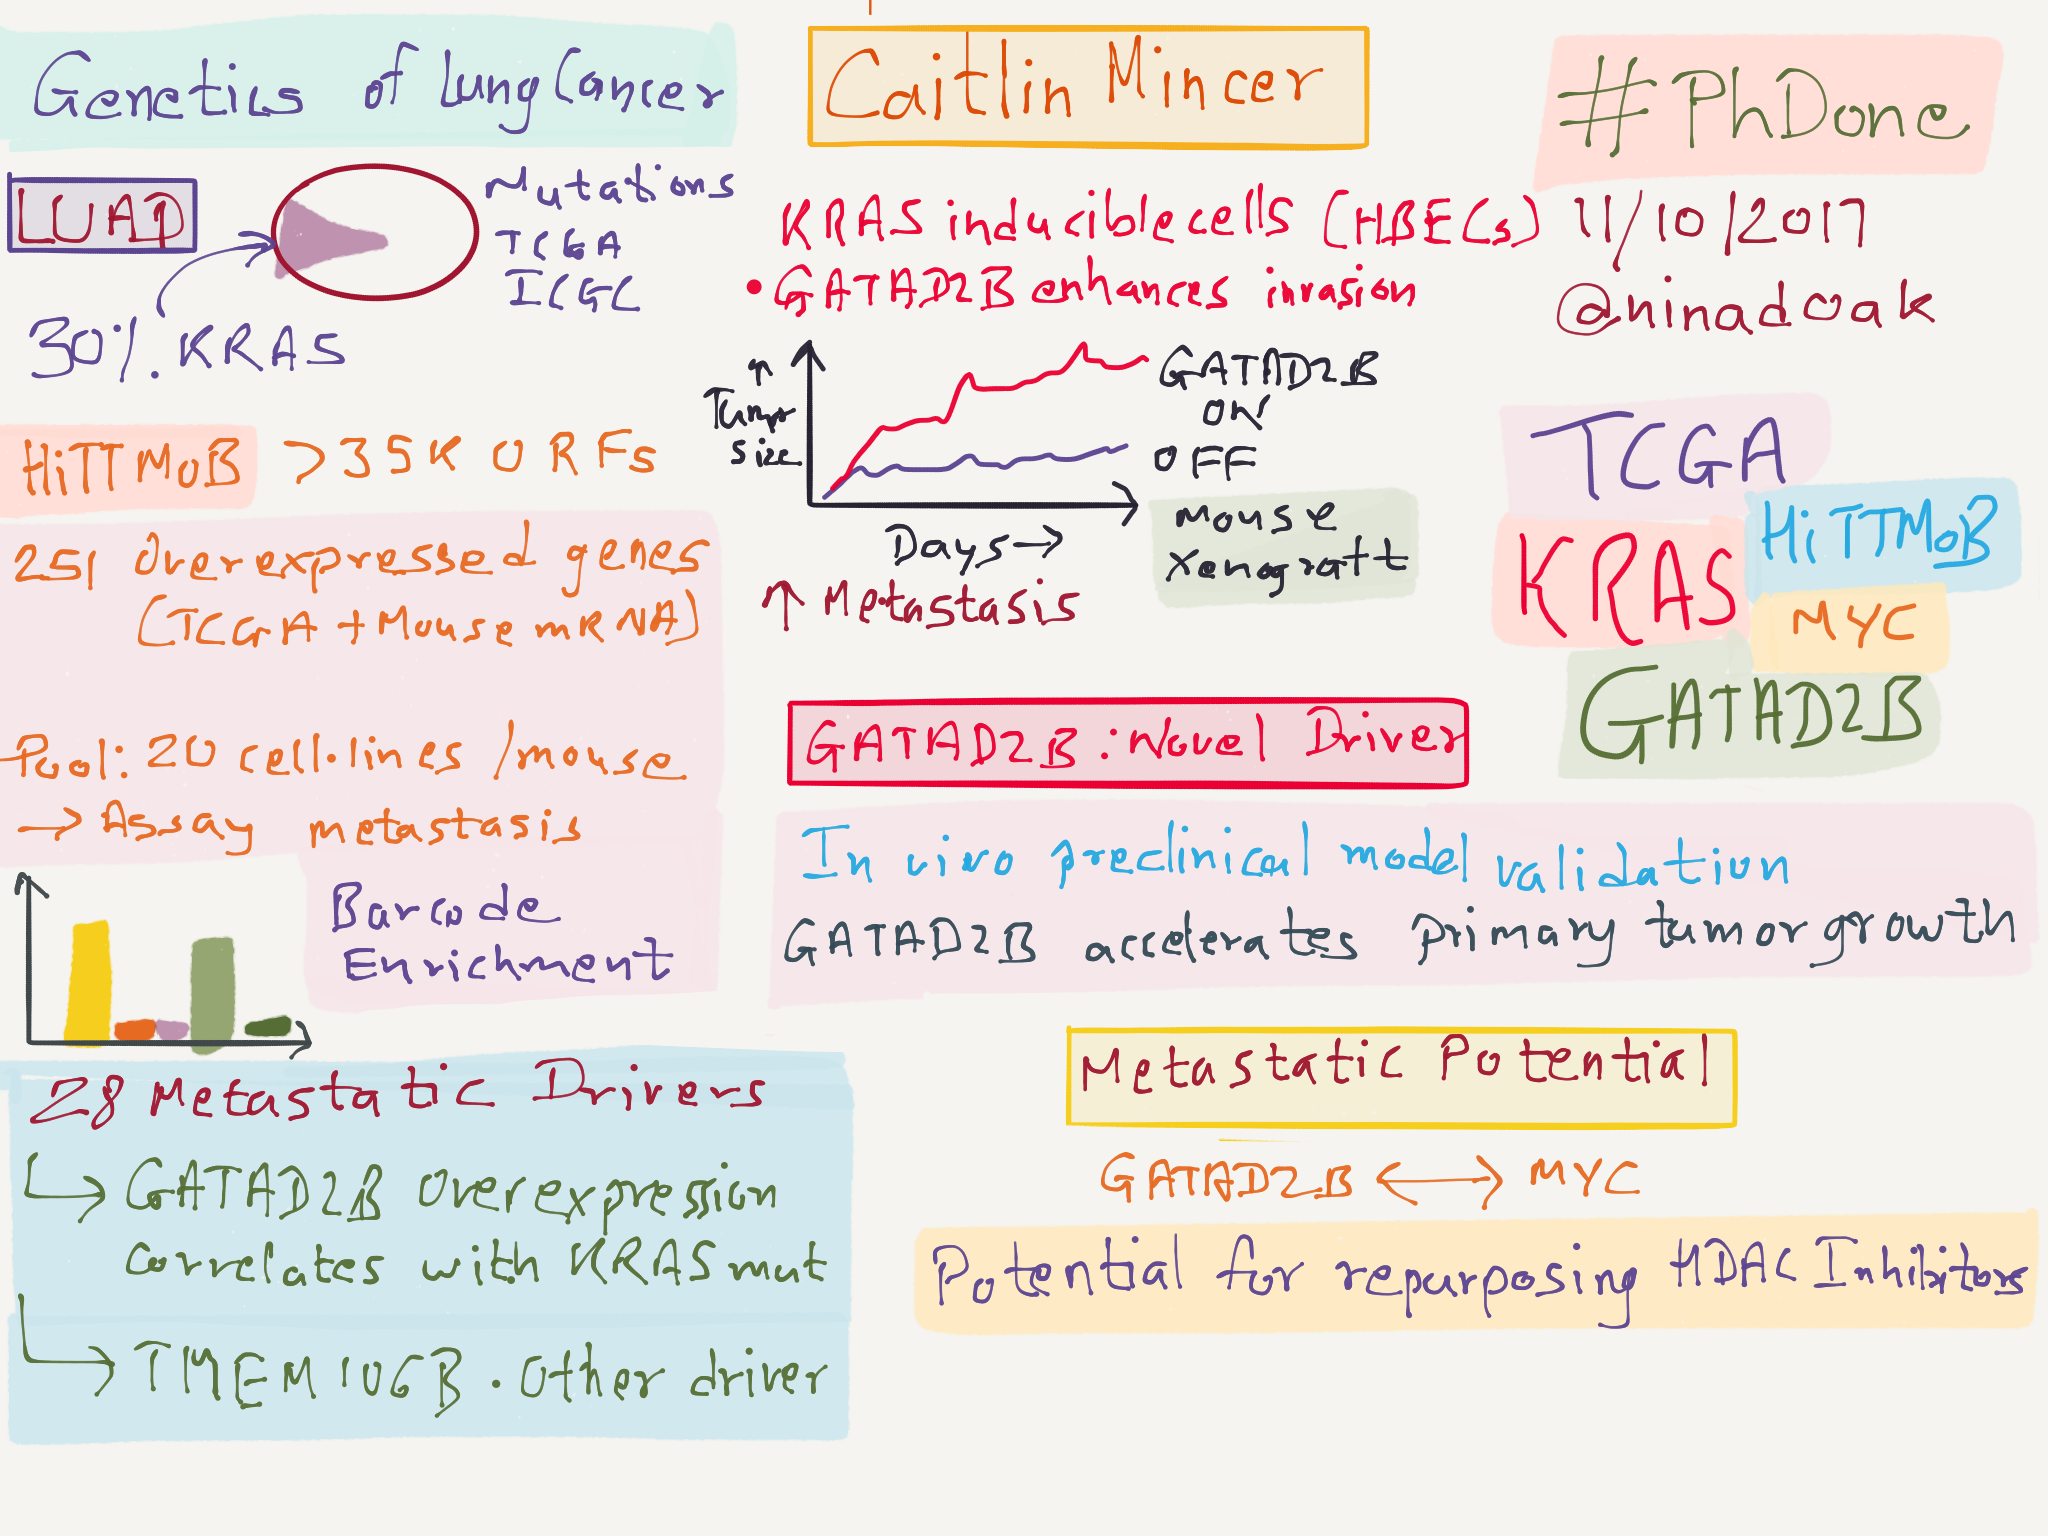 Genetics of Lung Cancer
LUAD
Mutations
TCGA
ICGC
30% KRAS
HiTTMoB >35K ORFs
251 Overexpressed genes
(TCGA + Mouse mRNA)
Pool: 20 cell-lines /mouse
→ Assay metastasis
Barcode
Enrichment
28 Metastatic Drivers
GATAD2B Overexpression
correlates with KRAS mut
TMEM106B · Other driver
Caitlin Mincer
KRAS inducible cells (HBECs)
• GATAD2B enhances invasion
↑
Tumor
Size
GATAD2B
ON
OFF
Days →
Mouse
Xenograft
↑ Metastasis
GATAD2B : Novel Driver
In vivo preclinical model validation
GATAD2B accelerates primary tumor growth
Metastatic Potential
GATAD2B ↔ MYC
Potential for repurposing HDAC Inhibitors
#PhDone
11/10/2017
@ninadoak
TCGA
HiTTMoB
KRAS
MYC
GATAD2B